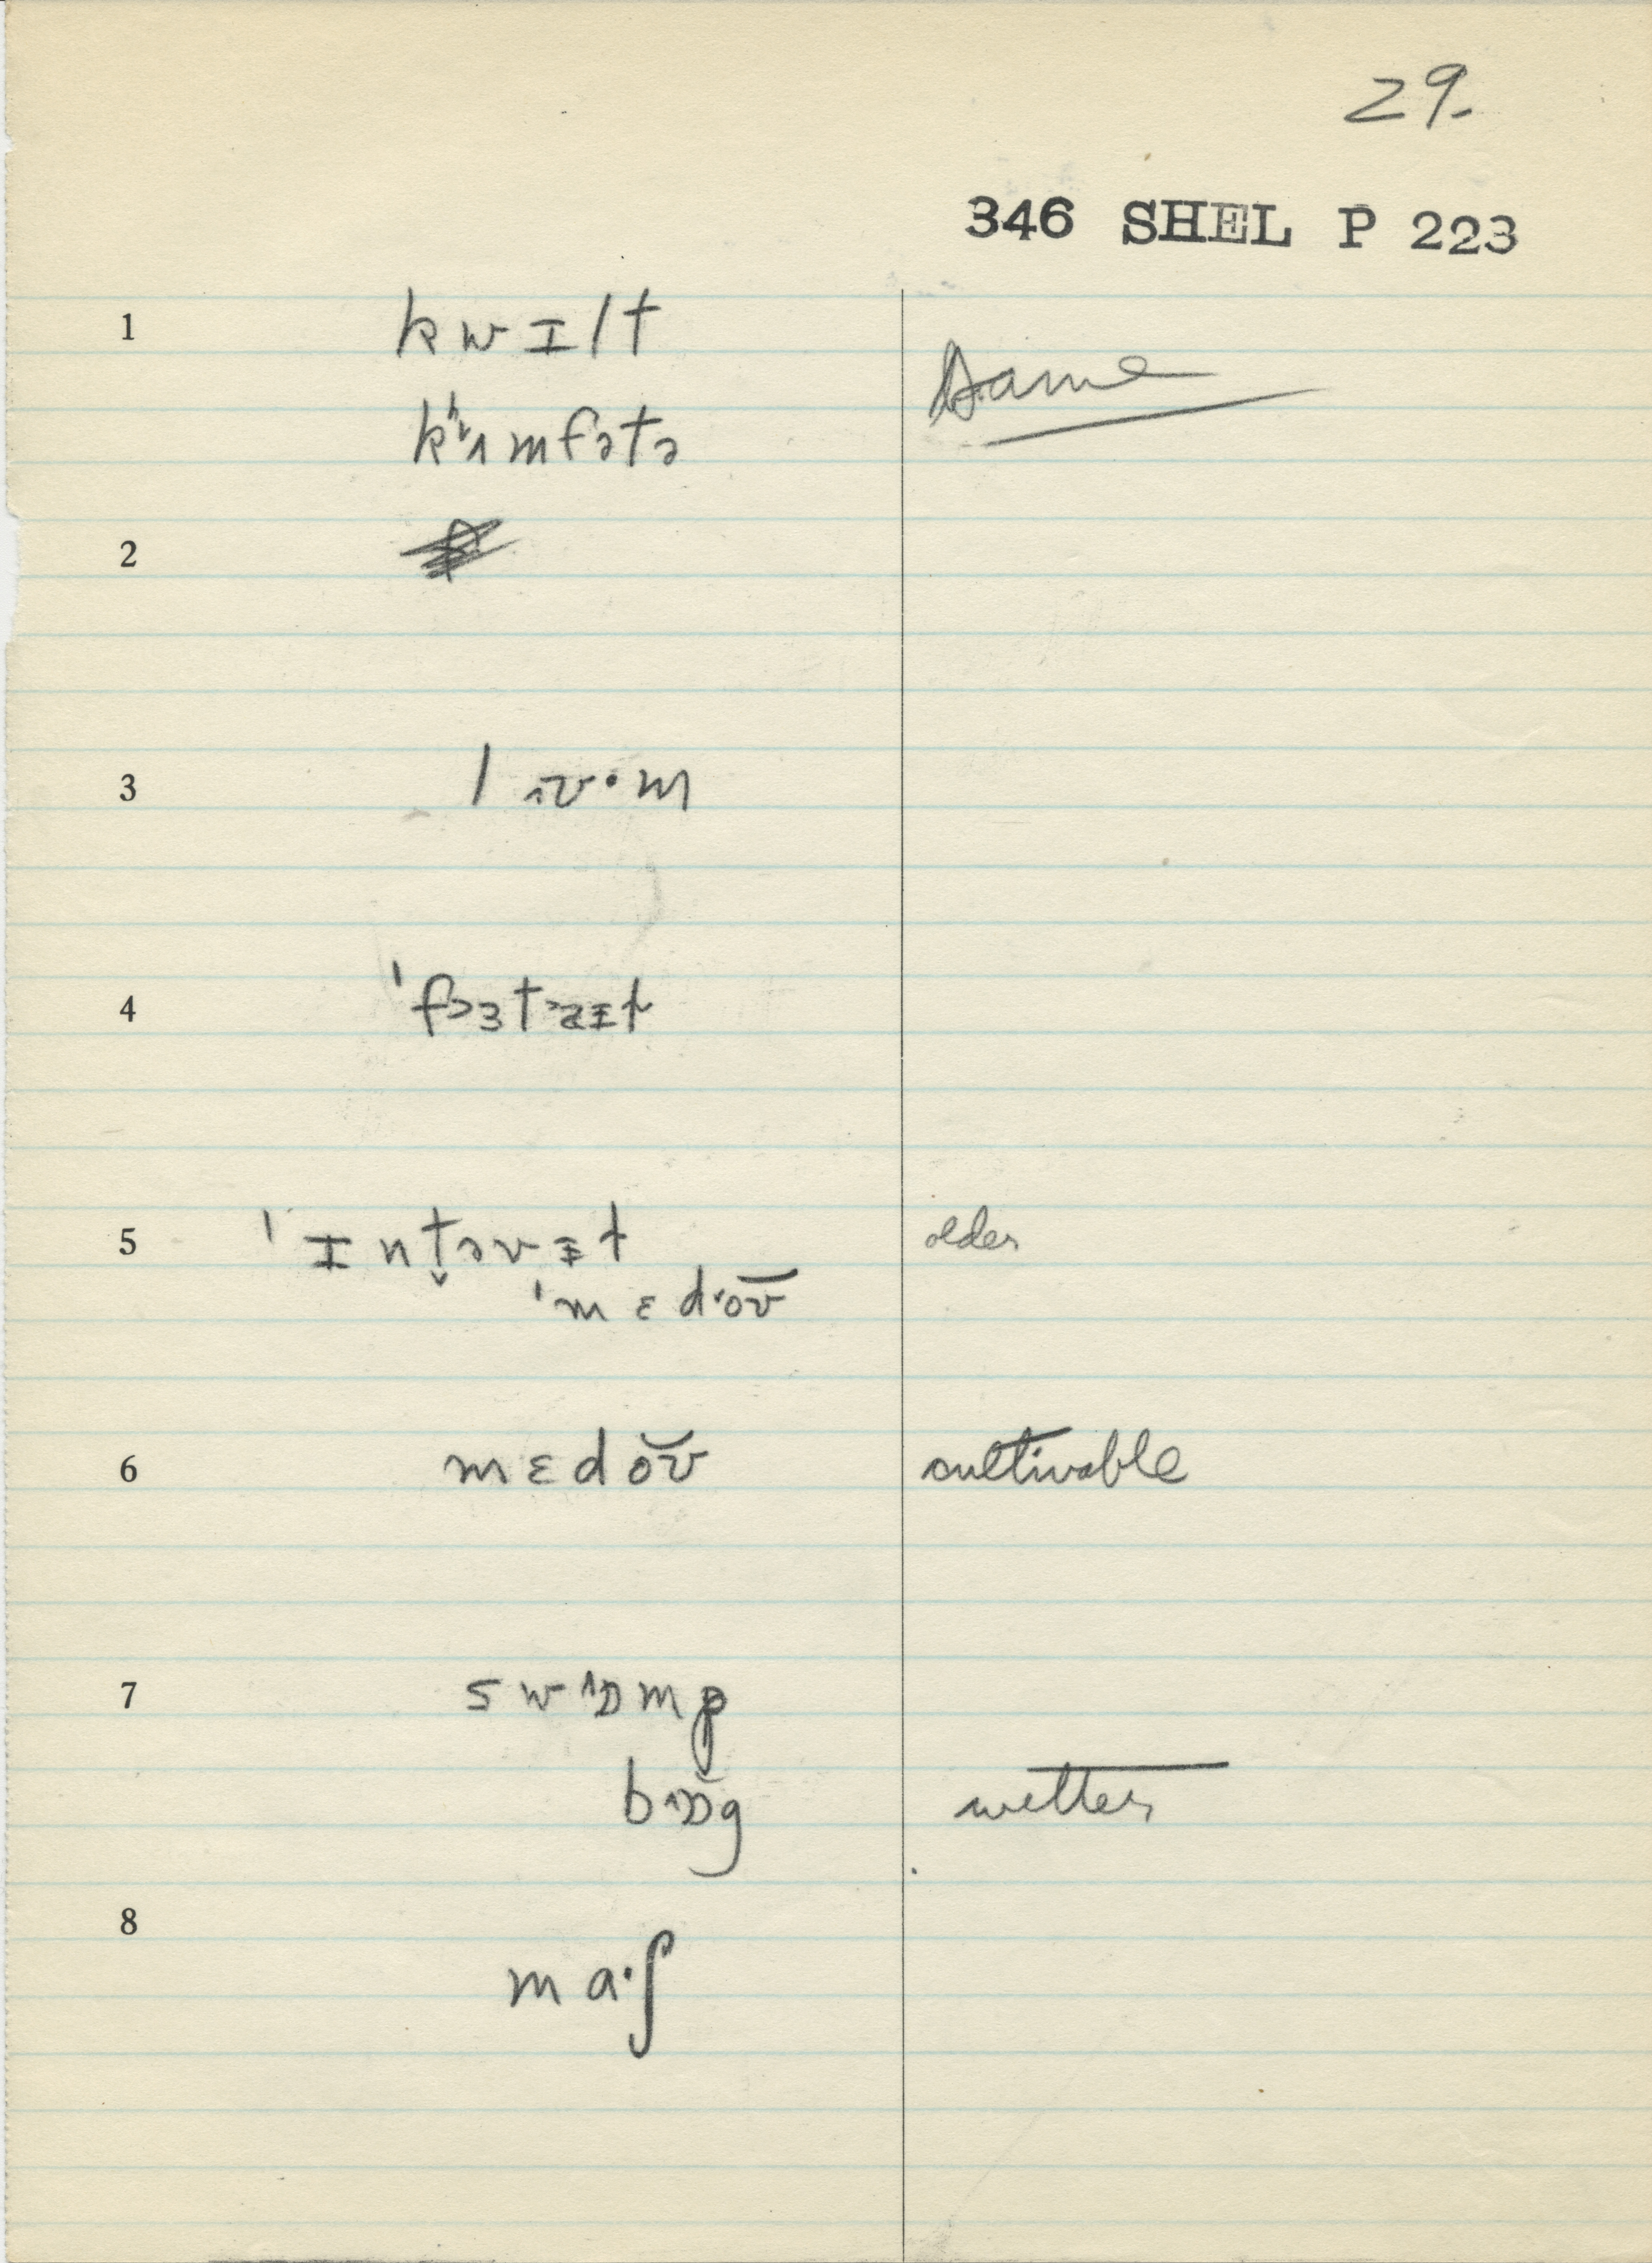 29.
346 SHEL P 223
1 kwɪlt
same
kʰʌmfətə
2
3 lʌʊ·m
4
5 ˈɪnt̬əvɪ̵t older
ˈmɛdoʊ
6 mɛdoʊ cultivable
7 swɒmp
bɒg wetter
8 ma·ʃ